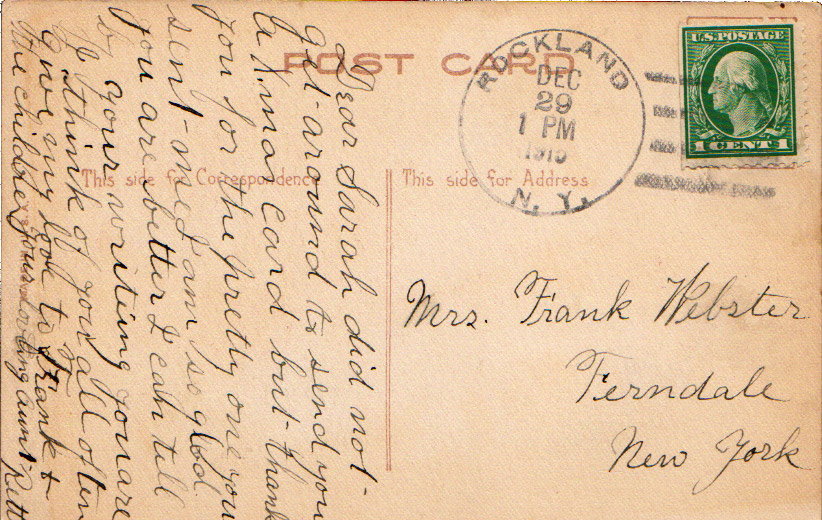 POST CARD
This side for Correspondence
This side for Address
ROCKLAND
DEC
29
1 PM
N. Y.
U.S. POSTAGE
1 CENT 1
Mrs. Frank Webster
Ferndale
New York
Dear Sarah did not
get around to send you
a Xmas card but thank
you for the pretty one you
sent me I am so glad
you are better I can tell
by your writing you are
I think of you all often
give my love to Frank &
the children your loving aunt Rett